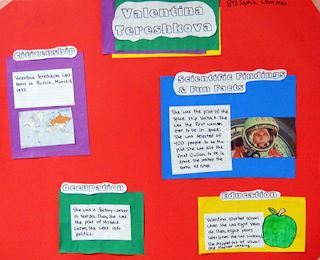 Valentina
Tereshkova
By: Sophia
Citizenship
Valentina Tereshkova was
born in Russia, March 6
1937.
Scientific Findings
& Fun Facts
She was the pilot of the
space ship Vostok 6. She
was the first woman
ever to be in space.
She was selected of
400 people to be the
pilot. She was also the
first civilian to be in
space. She orbited the
earth 48 times.
Occupation
She was a factory worker
in textiles. Then, she was
the pilot of Vostok 6.
Later, she went into
politics.
Education
Valentina started school
when she was eight years
old. Then, eight years
later
she dropped out of school
and started working.